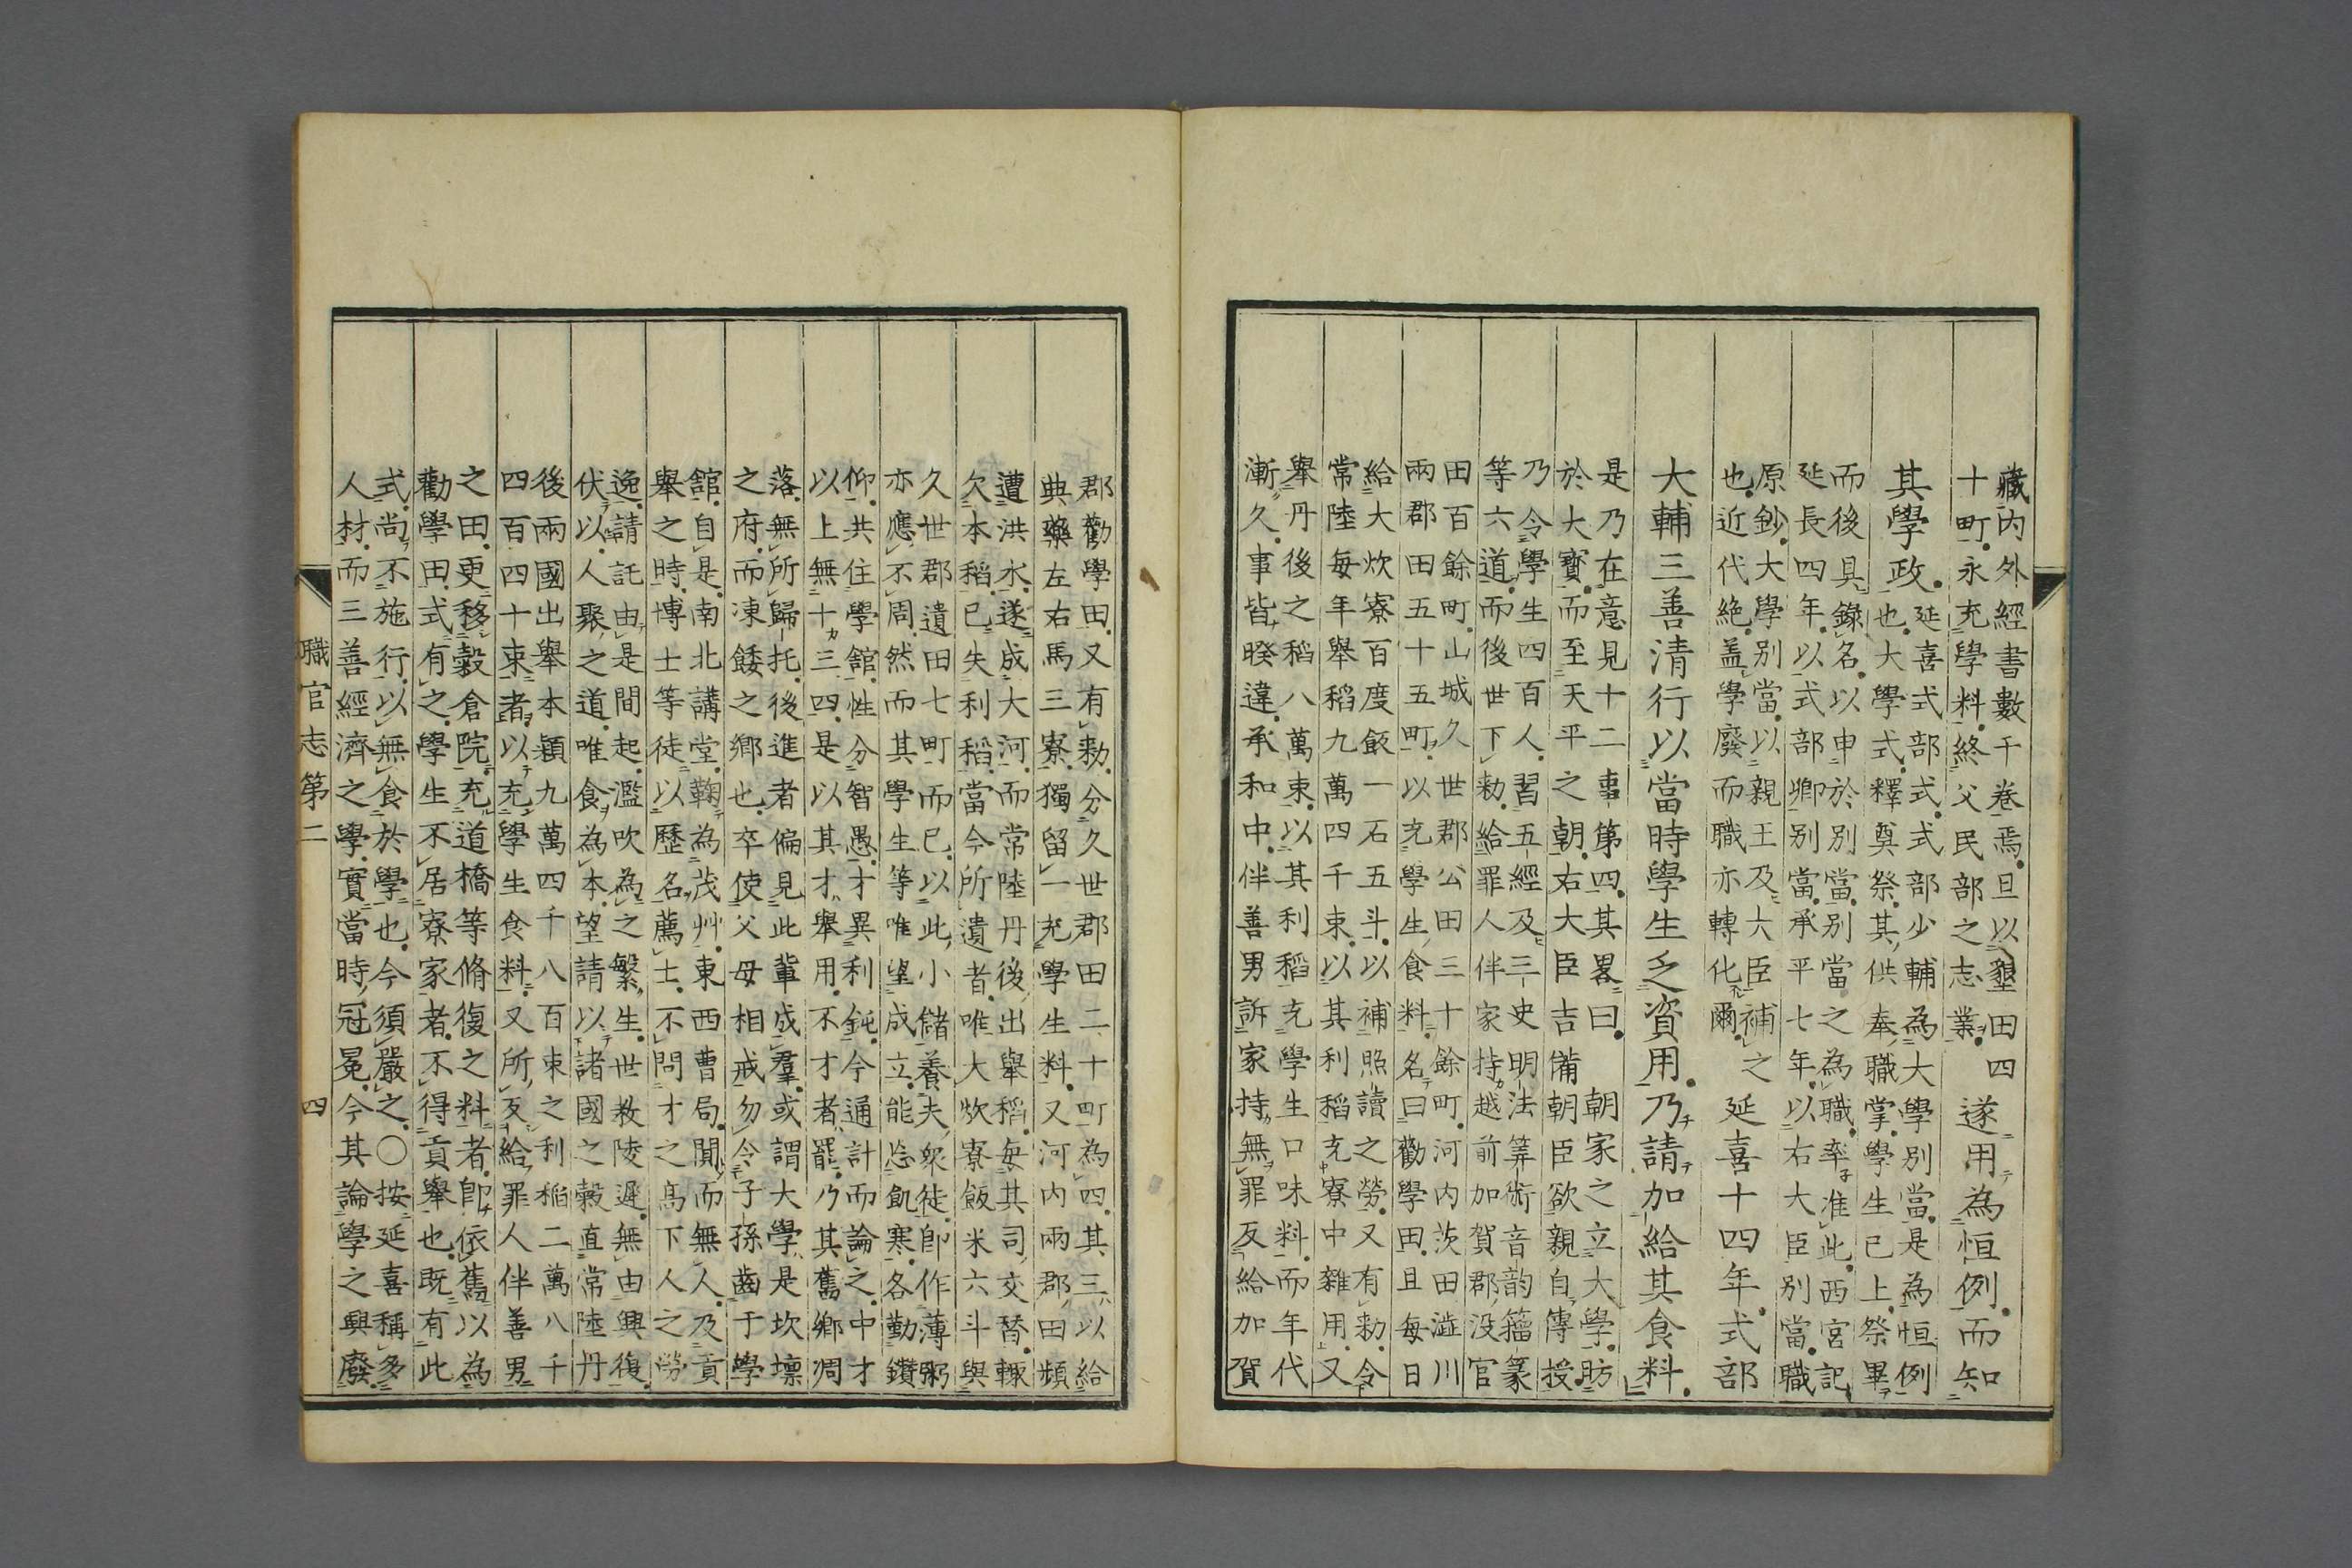 藏内外經書數千卷焉。且以墾田四
十町。永充學料。終父民部之志業。
遂用為恒例。而知
其學政。
延喜式部式。式部少輔為大學別當。是為恒例
也。大學式。釋奠祭。其供奉職掌。學生已上。祭畢
而後具錄名。以申於別當。別當之為職。率准此。西宮記
延長四年。以式部卿別當。承平七年。以右大臣別當。職
原鈔。大學別當。以親王及大臣補之
也。近代絶。盖學廢而職亦轉化爾。
延喜十四年。式部
大輔三善清行以當時學生乏資用。乃請加給其食料。
是乃在意見十二事第四。其畧曰。朝家之立大學。昉
於大寳。而至天平之朝。右大臣吉備朝臣欲親自傳授。
乃令學生四百人。習五經及三史明法筭術音韵籀篆
等六道。而後世下勑。給罪人伴家持越前加賀郡没官
田百餘町。山城久世郡公田三十餘町。河内茨田澁川
兩郡田五十五町。以充學生食料。名曰勸學田。且每日
給大炊寮百度飯一石五斗。以補照讀之勞。又有勑。令
常陸每年舉稻九萬四千束。以其利稻充寮中雜用。又
舉丹後之稻八萬束。以其利稻充學生口味料。而年代
漸久。事皆睽違。承和中。伴善男訴家持無罪。反給加賀
郡勸學田。又有勑。分久世郡田二十町為四。其三以給
典藥左右馬三寮。獨留一充學生料。又河内兩郡田頻
遭洪水。遂成大河。而常陸丹後出舉稻。每其司交替。輙
欠本稻。已失利稻。當今所遺者。唯大炊寮飯米六斗與
久世郡遺田七町而已。以此小儲養夫衆徒。即作薄粥
亦應不周。然而其學生等唯望成立。能忩飢寒。各勤鑽
仰。共住學館。性分智愚。才異利鈍。今通計而論之。中才
以上無十三四。是以其才舉用。不才者罷。乃其舊鄉凋
落。無所歸托。後進者偏見此輩成羣。或謂大學是坎壈
之府。而凍餧之鄉也。卒使父母相戒勿令子孫齒于學
館。自是南北講堂。鞠為茂艸。東西曹局。閴而無人。及貢
舉之時。博士等徒以歷名薦士。不問才之高下人之勞
逸。請託由是間起。濫吹為之繁生。世教陵遲。無由興復。
伏以人聚之道。唯食為本。望請以諸國之穀直常陸丹
後兩國出舉本穎九萬四千八百束之利稻二萬八千
四百四十束者。以充學生食料。又所反給罪人伴善男
之田。更移穀倉院。充道橋等脩復之料者。即依舊以為
勸學田。式有之。學生不居寮家者。不得貢舉也。既有此
式。尚不施行。以無食於學也。今須嚴之。〇按延喜稱多
人材。而三善經濟之學。實當時冠冕。今其論學之興廢。
職官志第二
四